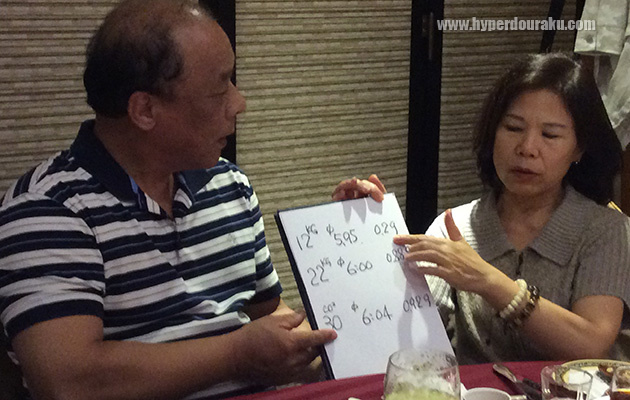 www.hyperdouraku.com
12KG φ5.95 0.29
22KG φ6:00
CO² 30 φ6:04 0.929